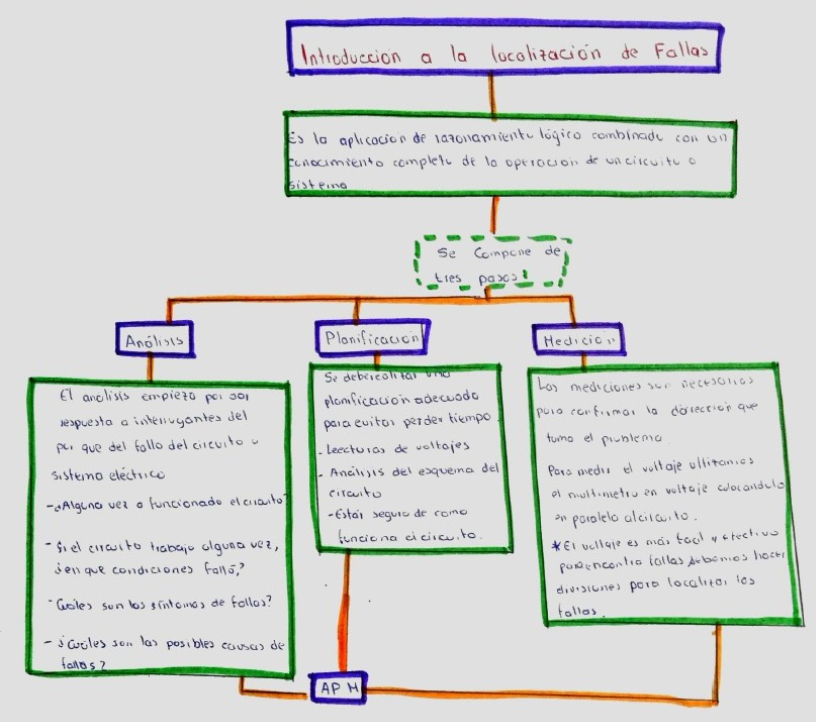 Introduccion a la localización de Fallas
Es la aplicacion de razonamiento lógico combinado con un
conocimiento completo de la operacion de un circuito o
sistema
Se Compone de
tres pasos:
Análisis
Planificacion
Medicion
El analisis empieza por dar
respuesta a interrugantes del
por que del fallo del circuito o
sistema eléctrico
-¿Alguna vez a funcionado el circuito?
- Si el circuito trabajo alguna vez,
¿en que condiciones falló?
- Cuáles son los síntomas de fallas?
- ¿Cuáles son las posibles causas de
fallas?
Se debe realizar una
planificación adecuada
para evitar perder tiempo
- Leecturas de voltajes
- Análisis del esquema del
circuito
- Estar seguro de como
funciona el circuito.
Las mediciones son necesarias
para confirmar la dirección que
tomo el problema
Para medir el voltaje utilizamos
el multimetro en voltaje colocandolo
en paralelo al circuito.
*El voltaje es más facil y efectivo
para encontra fallas debemos hacer
divisiones para localizar las
fallas.
AP M